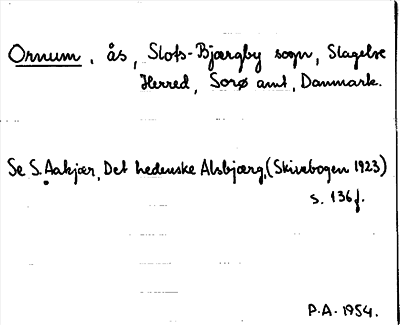 Ornum, ås, Slots-Bjærgby sogn, Slagelse
Herred, Sorø amt, Danmark.
Se S. Aakjær, Det hedenske Alsbjærg, (Skivebogen 1923)
s. 136f.
P.A. 1954.